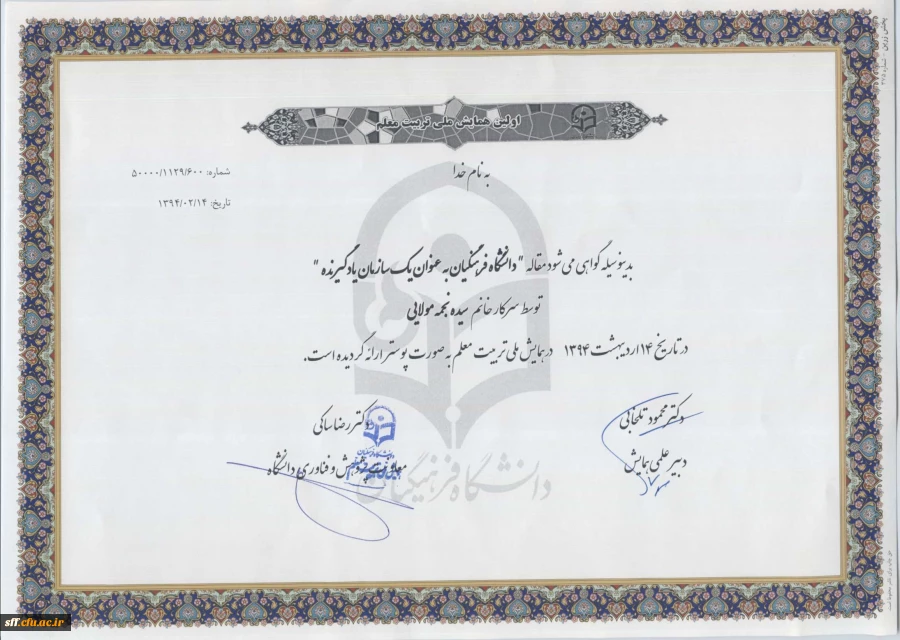 اولین همایش ملی تربیت معلم
به نام خدا
شماره: ۵۰۰۰۰/۱۱۲۹/۶۰۰
تاریخ: ۱۳۹۴/۰۲/۱۴
بدینوسیله گواهی می شود مقاله "دانشگاه فرهنگیان به عنوان یک سازمان یادگیرنده"
توسط سرکار خانم سیده نجمه مولایی
در تاریخ ۱۴ اردیبهشت ۱۳۹۴ در همایش ملی تربیت معلم به صورت پوستر ارائه گردیده است.
دکتر محمود تلخابی
دبیر علمی همایش
دکتر رضا ساکی
معاونت پژوهش و فناوری دانشگاه
دانشگاه فرهنگیان
sff.cfu.ac.ir